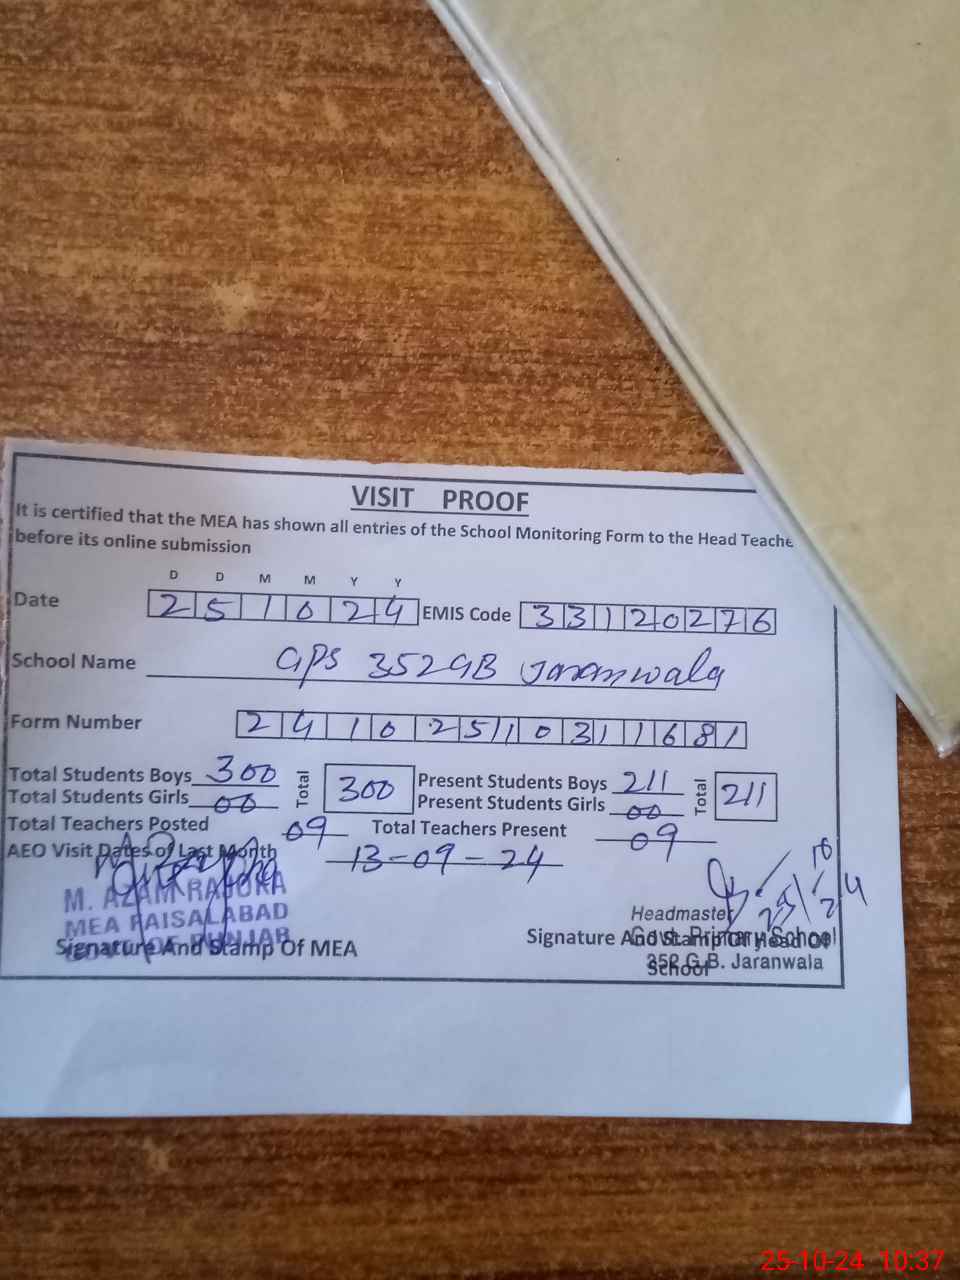 VISIT PROOF
It is certified that the MEA has shown all entries of the School Monitoring Form to the Head Teache
before its online submission
D D M M Y Y
Date 251024 EMIS Code 33120276
School Name GPS 352GB Jaranwala
Form Number 24102510311681
Total Students Boys 300 Total 300 Present Students Boys 211 Total 211
Total Students Girls 00 Present Students Girls 00
Total Teachers Posted 09 Total Teachers Present 09
AEO Visit Dates of Last Month 13-09-24
M. AZAM
MEA FAISALABAD
GOVT. OF PUNJAB
Signature And Stamp Of MEA
25/10/24
Headmaster
Govt. Primary School
352 G.B. Jaranwala
Signature And Stamp Of Head Of
School
25-10-24 10:37